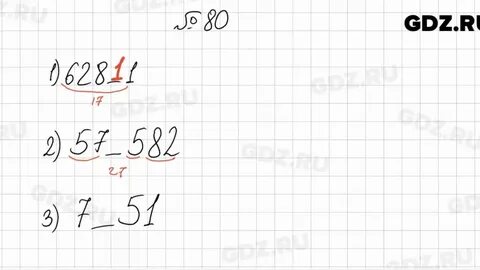 № 80
GDZ.RU
1) 628_1 1
17
2) 57_582
27
3) 7_51
GDZ.RU
GDZ.RU
GDZ.RU
GDZ.RU
GDZ.RU
GDZ.RU